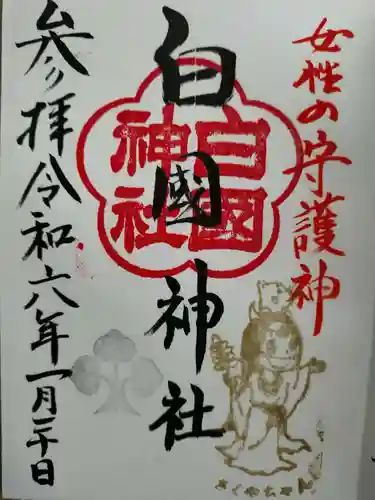 女性の守護神
白國神社
白國
神社
参拝令和六年一月二十日